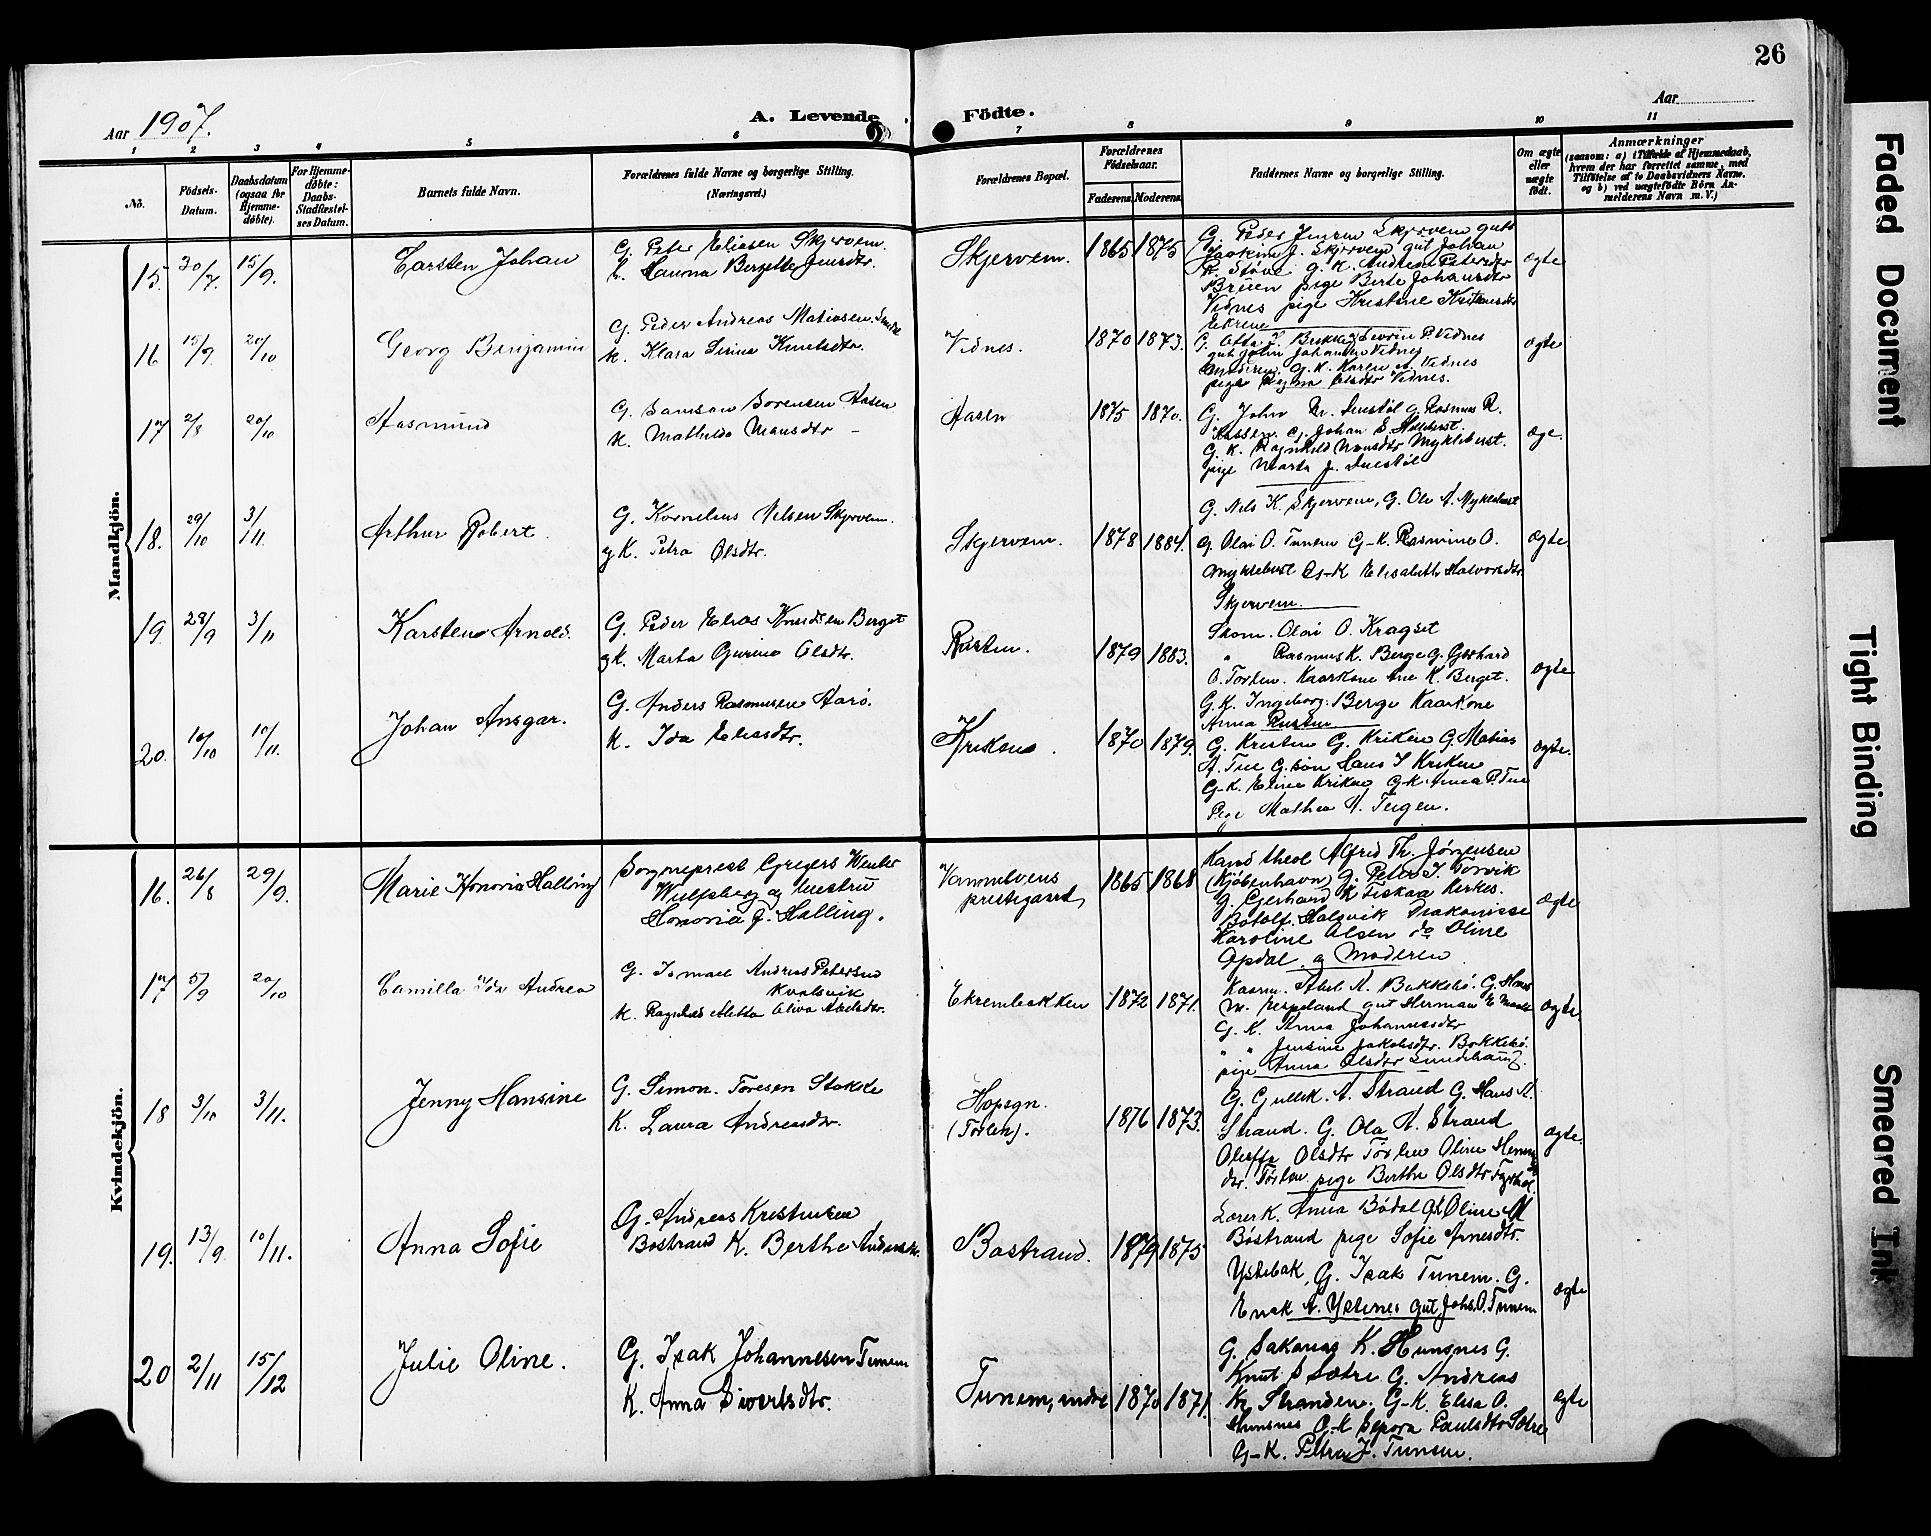 26
Aar 1907.
A. Levende Födte.
Aar
1 2 3 4 5 6 7 8 9 10 11
No.
Födsels-Datum.
Daabsdatum (ogsaa for Hjemme-döbte).
For Hjemme-döbte: Daabs-Stadfæstel-ses Datum.
Barnets fulde Navn.
Forældrenes fulde Navne og borgerlige Stilling.
(Næringsvei.)
Forældrenes Bopæl.
Forældrenes Födselsaar.
Faderens. Moderens.
Faddernes Navne og borgerlige Stilling.
Om ægte eller uægte födt.
Anmærkninger
(saasom: a) i Tilfælde af Hjemmedaab,
hvem der har forrettet samme, med
Tilföielse af to Daabsvidners Navne.
og b) ved uægtefödte Börn An-
melderens Navn m. V.)
Mandkjön.
15. 30/7. 15/9. Carsten Johan
G. Peter Eliasen Skjervem.
Hanna Bergitte Jensdtr.
Skjervem. 1865 1875
G. Peder Jensen Skjervem gut
J. Skjervem gut Johan
R. Støve G. K. Andrea Petersdtr
Brüen pige Berte Johansdtr
Vidnes pige Kristine
Ekrene
ægte
16 15/9. 20/10 Georg Benjamin
G. Peder Andreas Matiasen
K. Klara Sirina Knutsdtr.
Vidnes. 1870 1873.
P. Vidnes
gut John Johansen Vidnes
G. K. Karen Vidnes
pige Olsdtr Vidnes.
ægte
17 2/8 20/10 Aasmund
G. Samson Sorensen Aasen
K. Mathilda Monsdtr –
Aasen 1875 1870.
G. John G. Rasmus R.
G. Johan S
G. K. Ragnhild Monsdtr Myklebust.
pige Marta J.
ægte.
18. 29/10 3/11. Arthur Robert.
G. Kornelius Nilsen Skjervem.
g K. Petra Olsdtr.
Skjervem. 1878 1884.
G. Nils K. Skjervem, G. Ole A. Myklebust
G. Olai O. Tunem G–K. Rasmine O.
Myklebust G–K Elisabeth Halvorsdtr
Skjervem.
ægte
19. 28/9 3/11 Karsten Arnold.
G. Peder Elias Knudsen Berget
g K. Marta Gurine Olsdtr.
Rusten. 1879 1883.
Skom. Olai O. Kragset
" Rasmus K. Berge G. Gerhard
O. Torlen. Kaarkone Ane K. Berget.
G. K. Ingeborg Berge Kaarkone
Anna Rusten
ægte
20. 10/10 10/11. Johan Ansgar.
G. Anders Rasmusen Aarö.
K. Ida Eliasdtr.
Kriken. 1870 1879.
G. Kristen G. Kriken G. Matias
A. Tue G. søn Hans J Kriken
G–K. Eline Kriken G–K. Anna P. Tue
Pige Mathea A.
ægte.
Kvindekjön.
16. 26/8 29/9. Marie Honoria Halling
Sogneprest Gregers Winter
Wulfsberg og hustru
Honoria f. Halling.
Vannelvens
prestegaard, 1865 1868
Kand theol Alfred Th. Jörgensen
(Kjöbenhavn) G. Peter J. Torvik
G. Gerhard K Fiskaa Kirkes.
Botolf Diakonisse
Karoline Olsen do Oline
Opdal og Moderen
ægte
17 5/9 20/10 Camilla Ida Andrea
G. Ismael Andreas Petersen
Kvalsvik
K. Aletta Oliva Abelsdtr.
Ekrembakken 1872 1871.
Kaarm. Abel A. Bakkebö. G. Hans
M. gut Herman
G. K. Anna Johannesdtr
" " Jensine Jakobsdtr. Bakkebö.
pige Anna Olsdtr
ægte.
18 3/10 3/11. Jenny Hansine
G. Simon Toresen Stokke
K. Laura Andreasdtr.
Hopsgn.
(Torlen). 1876 1873.
G. A. Strand G. Hans A.
Strand. G. Ola A. Strand
Oluffa Olsdtr Törlen Oline
dtr. Törlen pige Berthe Olsdtr
ægte.
19. 13/9. 10/11. Anna Sofie
G. Andreas Kristensen
Bøstrand K. Berthe Andersdtr.
Bøstrand. 1879 1875
Lærer K. Anna Bødal GK Oline M
Bøstrand pige Sofie Arnesdtr.
Ystebak, G. Isak Tunem. G.
Enok A. Ystenes gut Johs. O. Tunem
ægte
20 2/11 15/12 Julie Oline.
G. Isak Johannesen Tunem
K. Anna Sivertsdtr.
Tunem, indre 1870 1871.
G. Sakarias K. Hunsnes G.
Knut S Sætre G. Andreas
Kr. Stranden. G–K. Elisa O.
Hunsnes G–K Sepora Paulsdtr Sætre
G–K. Petra J. Tunem.
ægte
Faded Document
Tight Binding
Smeared Ink